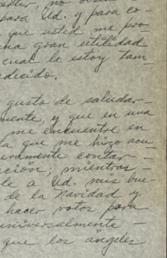 para Ud. y para co-
que usted me pro-
na gran utilidad
cual le estoy tam-
decido.
gusto de saludar-
mente, y que en una
me encuentre en
la que me hizo acu-
eramente contar-
cción; mientras
le a Ud. mis bue-
de la Navidad y
hacer votos para
universalmente
que los angeles